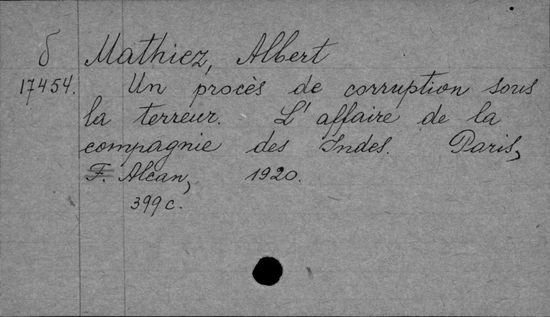 δ Mathiez, Albert
17454. Un procès de corruption sous
la terreur. L'affaire de la
compagnie des Indes. Paris,
F. Alcan, 1920.
399 c.